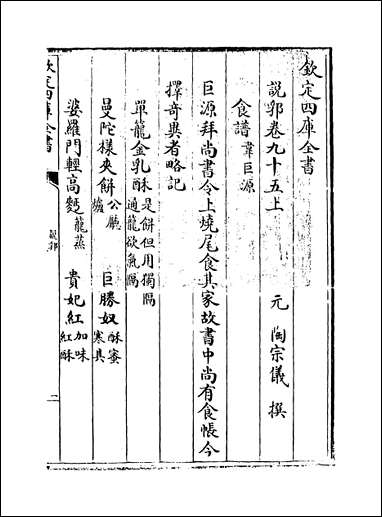 欽定四庫全書
說郛卷九十五上
元 陶宗儀 撰
食譜 韋巨源
巨源拜尚書令上燒尾食其家故書中尚有食帳今
擇奇異者略記
單籠金乳酥 是餅但用獨隔通籠欲氣隔
曼陀樣夾餅 公廳爐 巨勝奴 酥蜜寒具
婆羅門輕高麫 籠蒸 貴妃紅 加味紅酥
欽定四庫全書
說郛